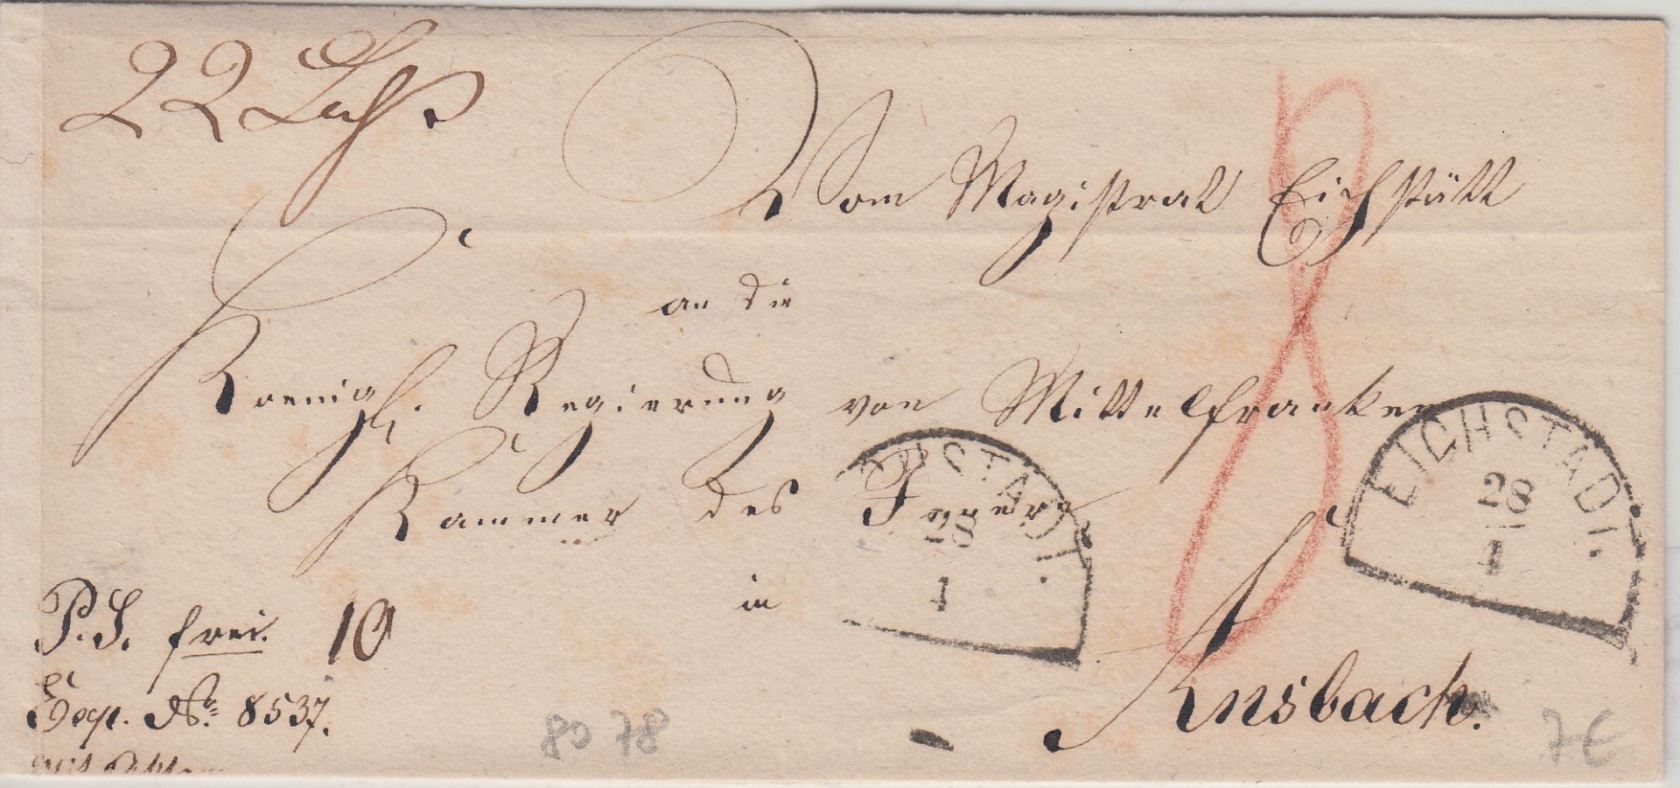 22 Loth
Vom Magistrat Eichstätt
an die
Koenigl. Regierung von Mittelfranken
Kammer des Innern
in
Ansbach.
P. S. frei. 10
Exp. No. 8537.
EICHSTADT.
28
1
EICHSTADT.
28
1
8
80 78
7€